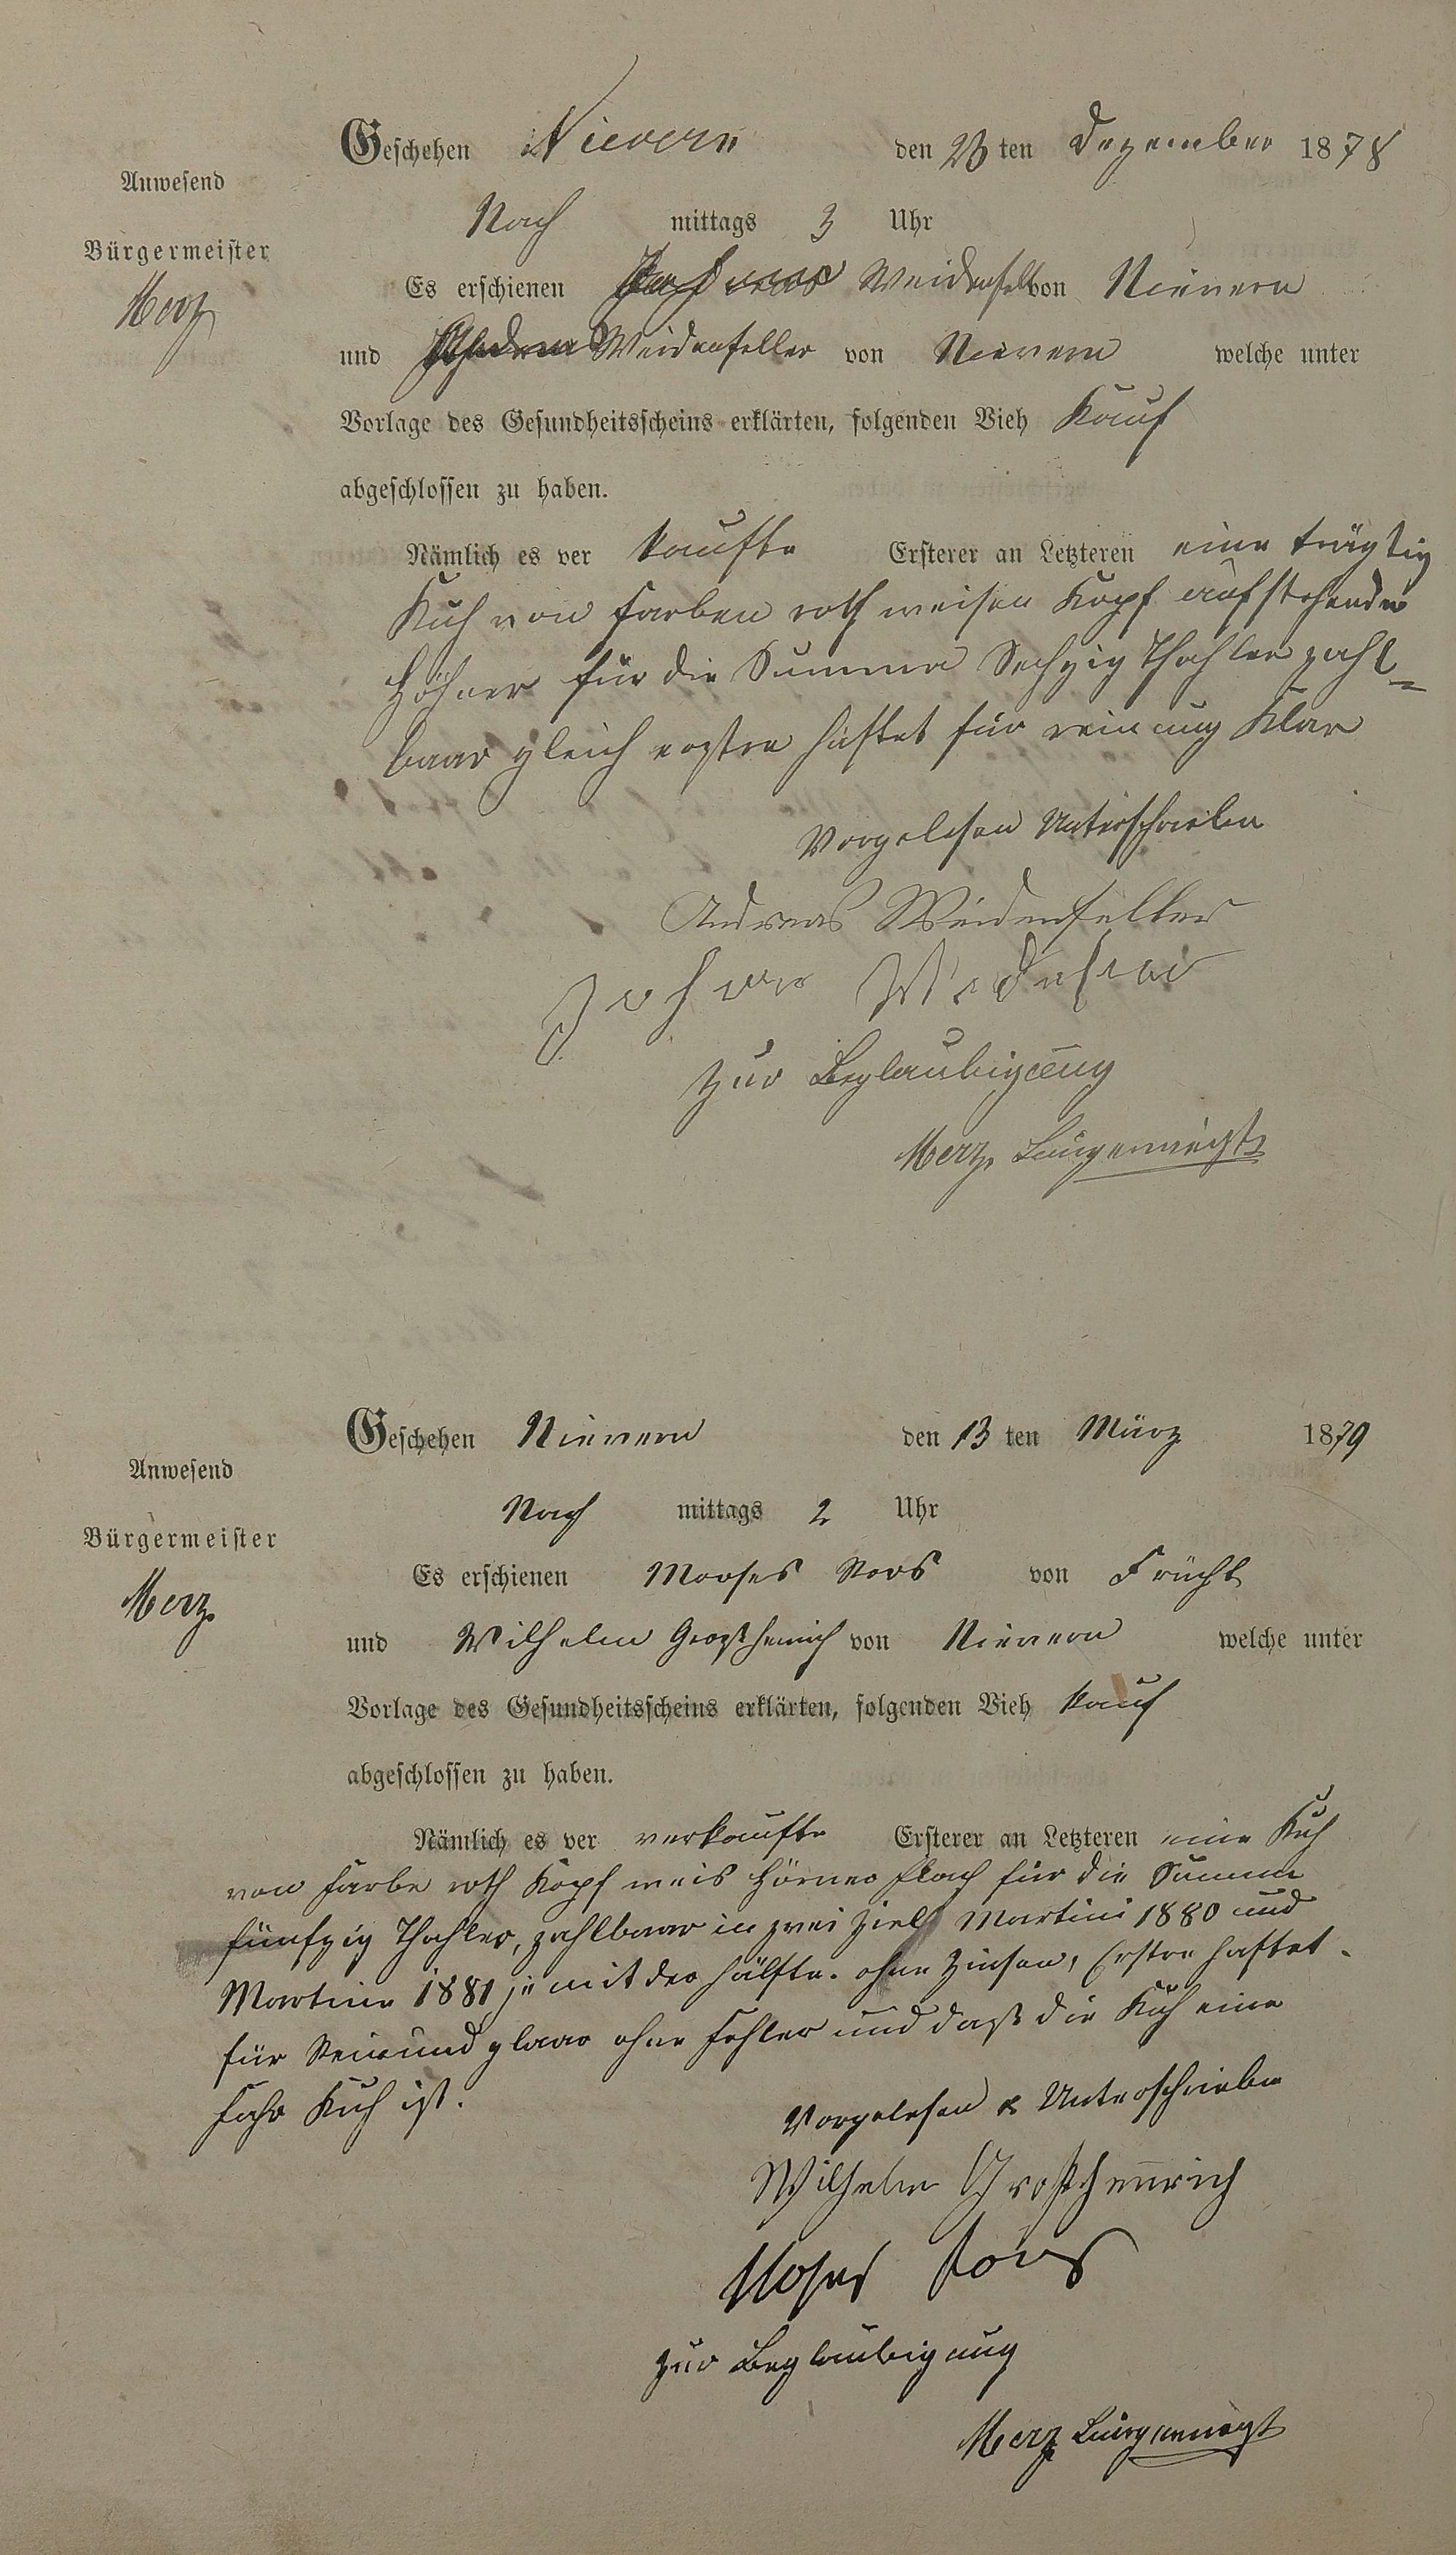 Geschehen Nievern den 23 ten Dezember 1878
Anwesend
Nach mittags 3 Uhr
Bürgermeister
Merz
Es erschienen Weidenfell von Nievern
und Weidenfeller von Nievern welche unter
Vorlage des Gesundheitsscheins erklärten, folgenden Vieh Kauf
abgeschlossen zu haben.
Nämlich es ver kaufte Ersterer an Letzteren eine trägtig
Kuh von Farben roth weisen Kopf aufstehender
Höhner für die Summa Sechzig Thahler zahl=
baar gleich erstre haftet für rein Klar
Vorgelesen Unterschrieben
Andreas Weidenfeller
Johan
zur Beglaubigung
Merz, Bürgermeist
Geschehen Nievern den 13 ten März 1879
Anwesend
Nach mittags 2 Uhr
Bürgermeister
Merz
Es erschienen Moses von Frücht
und Wilhelm Großhenrich von Nievern welche unter
Vorlage des Gesundheitsscheins erklärten, folgenden Vieh kauf
abgeschlossen zu haben.
Nämlich es ver verkaufte Ersterer an Letzteren eine Kuh
von Farbe roth Kopf weis Hörner flach für die Summe
fünfzig Thahler, zahlbaar in zwei Ziel Martini 1880 und
Martini 1881 je mit der Hälfte. ohne Zinsen, Erstre haftet
für Rein und glaar ohne Fehler und daß die Kuh eine
Fahr Kuh ist.
Vorgelesen & Unterschrieben
Wilhelm Großhennrich
Moses
zur Beglaubigung
Merz Bürgermeist